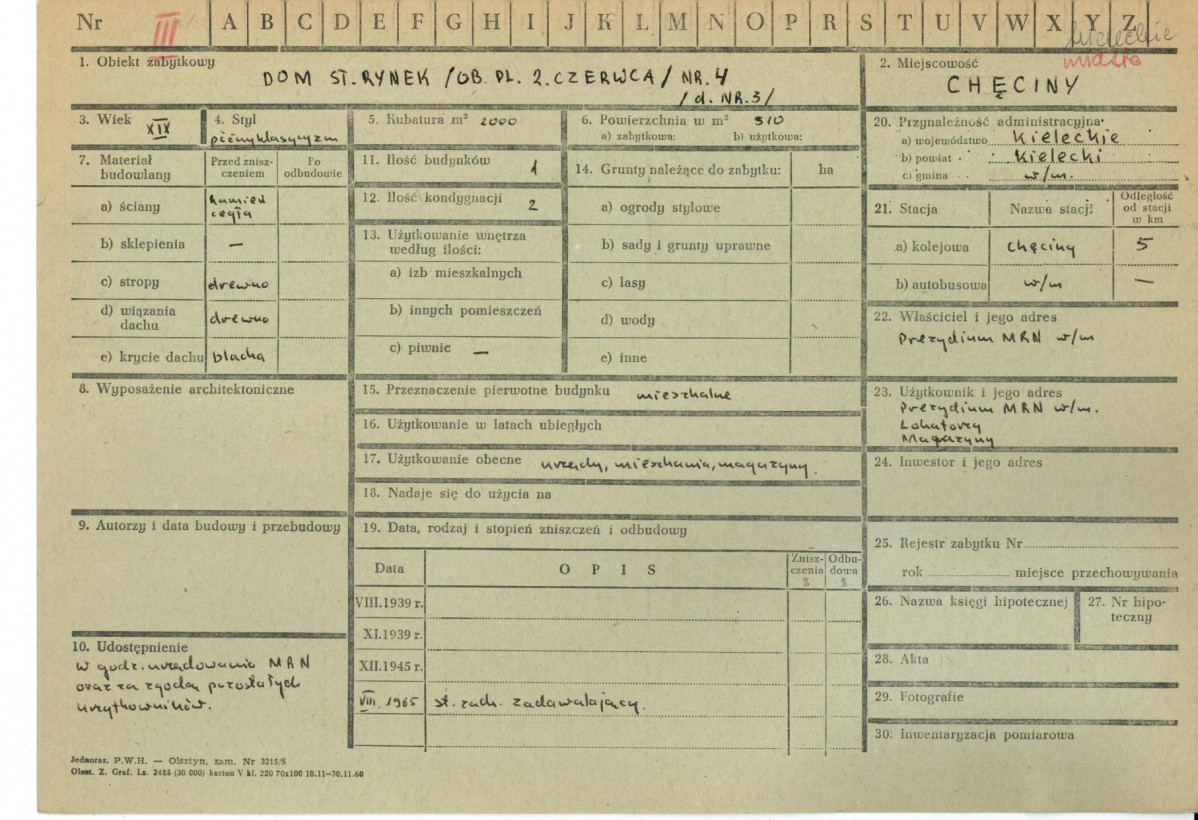 Nr III A B C D E F G H I J K L M N O P R S T U V W X Y Z
kieleckie
miasto
1. Obiekt zabytkowy
DOM ST. RYNEK /OB. PL. 2. CZERWCA/ NR. 4
/d. NR. 3/
2. Miejscowość
CHĘCINY
3. Wiek XIX
4. Styl
późnyklasycyzm
5. Kubatura m³ 2000
6. Powierzchnia w m² 310
a) zabytkowa: b) użytkowa:
7. Materiał budowlany
Przed znisz-
czeniem
Po
odbudowie
a) ściany kamień
cegła
b) sklepienia —
c) stropy drewno
d) wiązania
dachu drewno
e) krycie dachu blacha
8. Wyposażenie architektoniczne
9. Autorzy i data budowy i przebudowy
10. Udostępnienie
w godz. urzędowania MRN
oraz za zgodą pozostałych
użytkowników.
11. Ilość budynków 1
12. Ilość kondygnacji 2
13. Użytkowanie wnętrza
według ilości:
a) izb mieszkalnych
b) innych pomieszczeń
c) piwnic —
14. Grunty należące do zabytku: ha
a) ogrody stylowe
b) sady i grunty uprawne
c) lasy
d) wody
e) inne
15. Przeznaczenie pierwotne budynku mieszkalne
16. Użytkowanie w latach ubiegłych
17. Użytkowanie obecne urzędy, mieszkania, magazyny.
18. Nadaje się do użycia na
19. Data, rodzaj i stopień zniszczeń i odbudowy
Data OPIS
Znisz-
czenia
%
Odbu-
dowa
%
VIII.1939 r.
XI.1939 r.
XII.1945 r.
VIII. 1965 st. zach. zadawalający.
20. Przynależność administracyjna:
a) województwo Kieleckie
b) powiat Kielecki
c) gmina w/m.
21. Stacja Nazwa stacji
Odległość
od stacji
w km
a) kolejowa chęciny 5
b) autobusowa w/m —
22. Właściciel i jego adres
Prezydium MRN w/m
23. Użytkownik i jego adres
Prezydium MRN w/m.
Lokatorzy
Magazyny
24. Inwestor i jego adres
25. Rejestr zabytku Nr
rok miejsce przechowywania
26. Nazwa księgi hipotecznej
27. Nr hipo-
teczny
28. Akta
29. Fotografie
30. Inwentaryzacja pomiarowa
Jednoraz. P.W.H. — Olsztyn, zam. Nr 3215/S
Olszt. Z. Graf. Lz. 2485 (30 000) karton V kl. 220 70x100 10.11—30.11.60